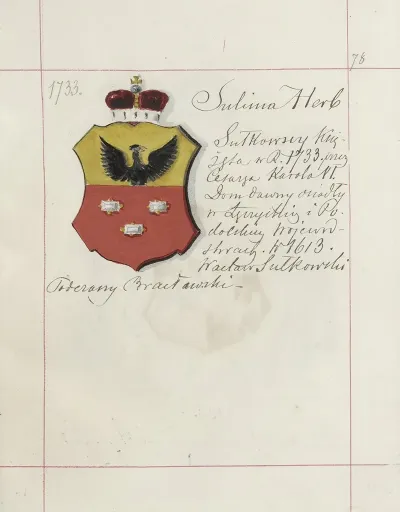 78
1733.
Sulima Herb
Sułkowscy Ksią-
żęta w R. 1733. przez
Cesarza Karola VI.
Dom dawny osiadły
w Łęczyckiej i Po-
dolskiej Wojewód-
ztwach. W 1613.
Wacław Sułkowski
Podczaszy Bracławski –